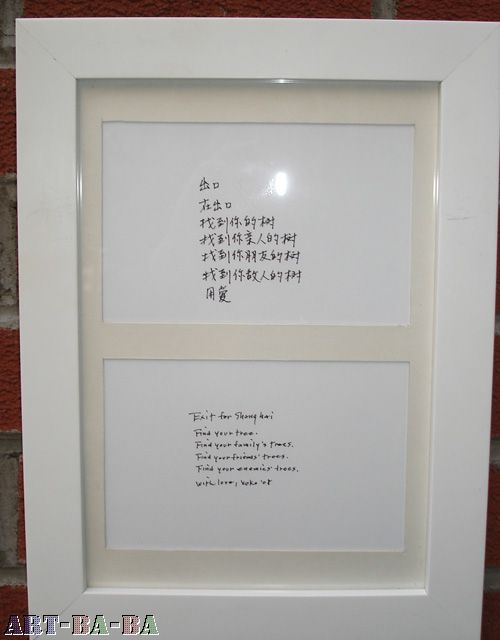 出口
在出口
找到你的树
找到你亲人的树
找到你朋友的树
找到你敌人的树
用愛
Exit for Shanghai
Find your tree.
Find your family's trees.
Find your friends' trees.
Find your enemies' trees.
with love, Yoko '08
ART-BA-BA